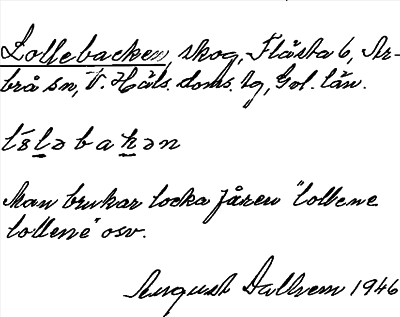 Lollebacken, skog, Flästa 6, Ar-
brå sn, V. Häls. doms. tg, Gvl. län.
Man brukar locka fåren "lollene
lollene" osv.
August Dallrem 1946